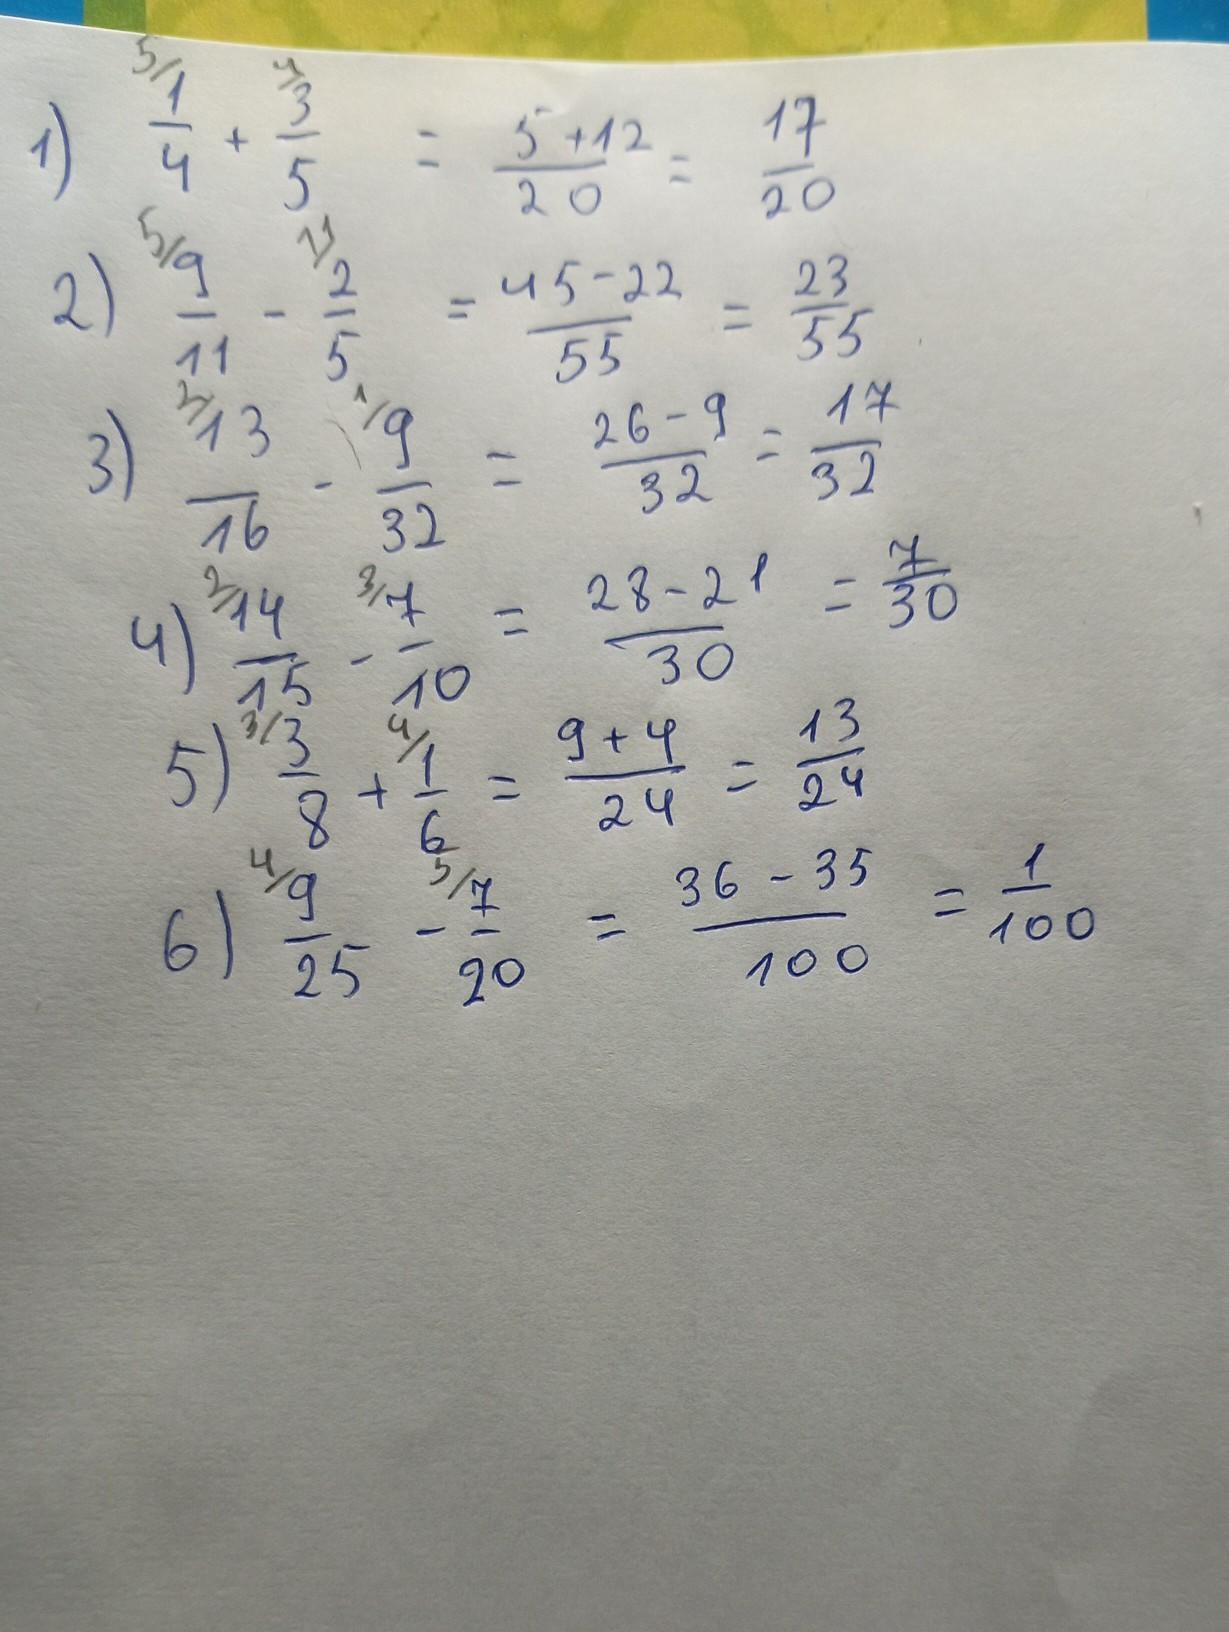 1) 5/1/4 + 4/3/5 = 5+12/20 = 17/20
2) 5/9/11 - 11/2/5 = 45-22/55 = 23/55
3) 2/13/16 - 1/9/32 = 26-9/32 = 17/32
4) 2/14/15 - 3/7/10 = 28-21/30 = 7/30
5) 3/3/8 + 4/1/6 = 9+4/24 = 13/24
6) 4/9/25 - 5/7/20 = 36-35/100 = 1/100